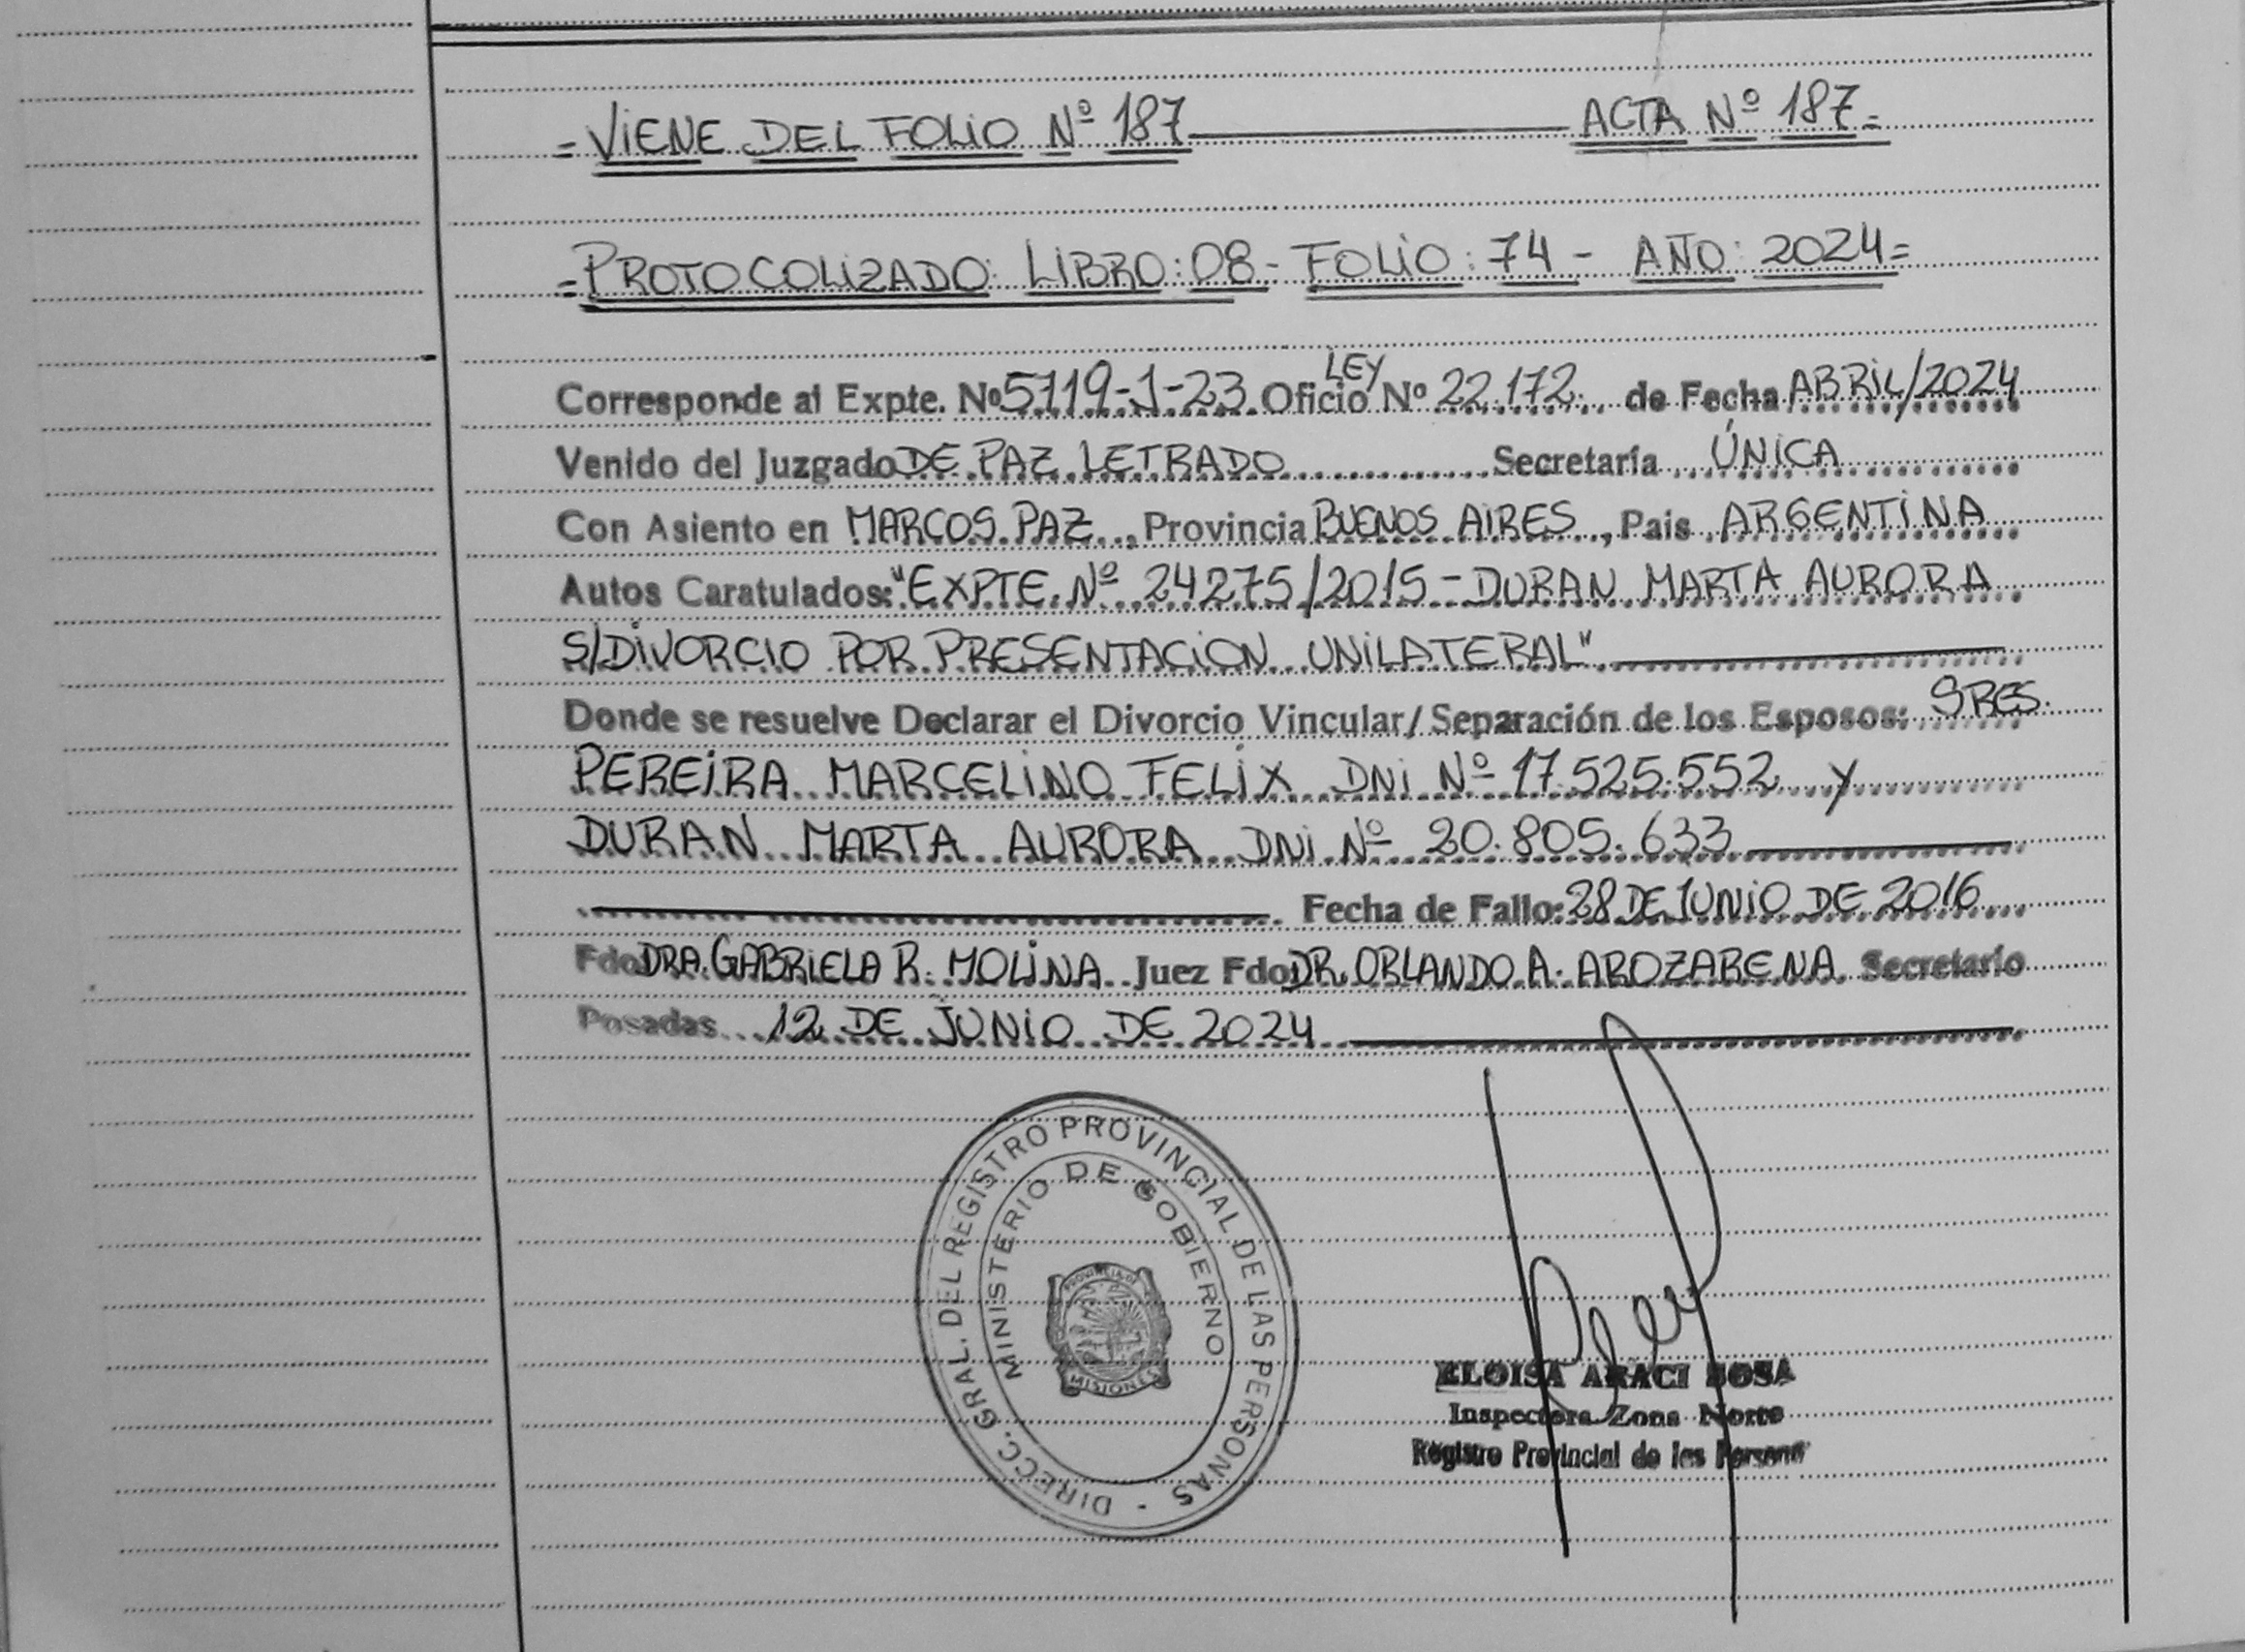 = VIENE DEL FOLIO Nº 187 ACTA Nº 187 =
= PROTOCOLIZADO: LIBRO: 08 - FOLIO: 74 - AÑO: 2024 =
Corresponde al Expte. Nº 5119-J-23 Oficio LEY Nº 22.172 de Fecha ABRIL/2024
Venido del Juzgado DE PAZ LETRADO Secretaría ÚNICA
Con Asiento en MARCOS PAZ, Provincia BUENOS AIRES, Pais ARGENTINA
Autos Caratulados: "EXPTE. Nº 24275/2015 - DURAN MARTA AURORA
S/DIVORCIO POR PRESENTACION UNILATERAL"
Donde se resuelve Declarar el Divorcio Vincular/Separación de los Esposos: SRES.
PEREIRA MARCELINO FELIX DNI Nº 17.525.552 y
DURAN MARTA AURORA DNI Nº 20.805.633
Fecha de Fallo: 28 DE JUNIO DE 2016
Fdo DRA. GABRIELA R. MOLINA Juez Fdo: DR. ORLANDO A. AROZARENA Secretario
Posadas 12 DE JUNIO DE 2024
DIRECC. GRAL. DEL REGISTRO PROVINCIAL DE LAS PERSONAS -
MINISTERIO DE GOBIERNO
PROVINCIA DE
MISIONES
ELOISA ARACI SOSA
Inspectora Zona Norte
Registro Provincial de las Personas